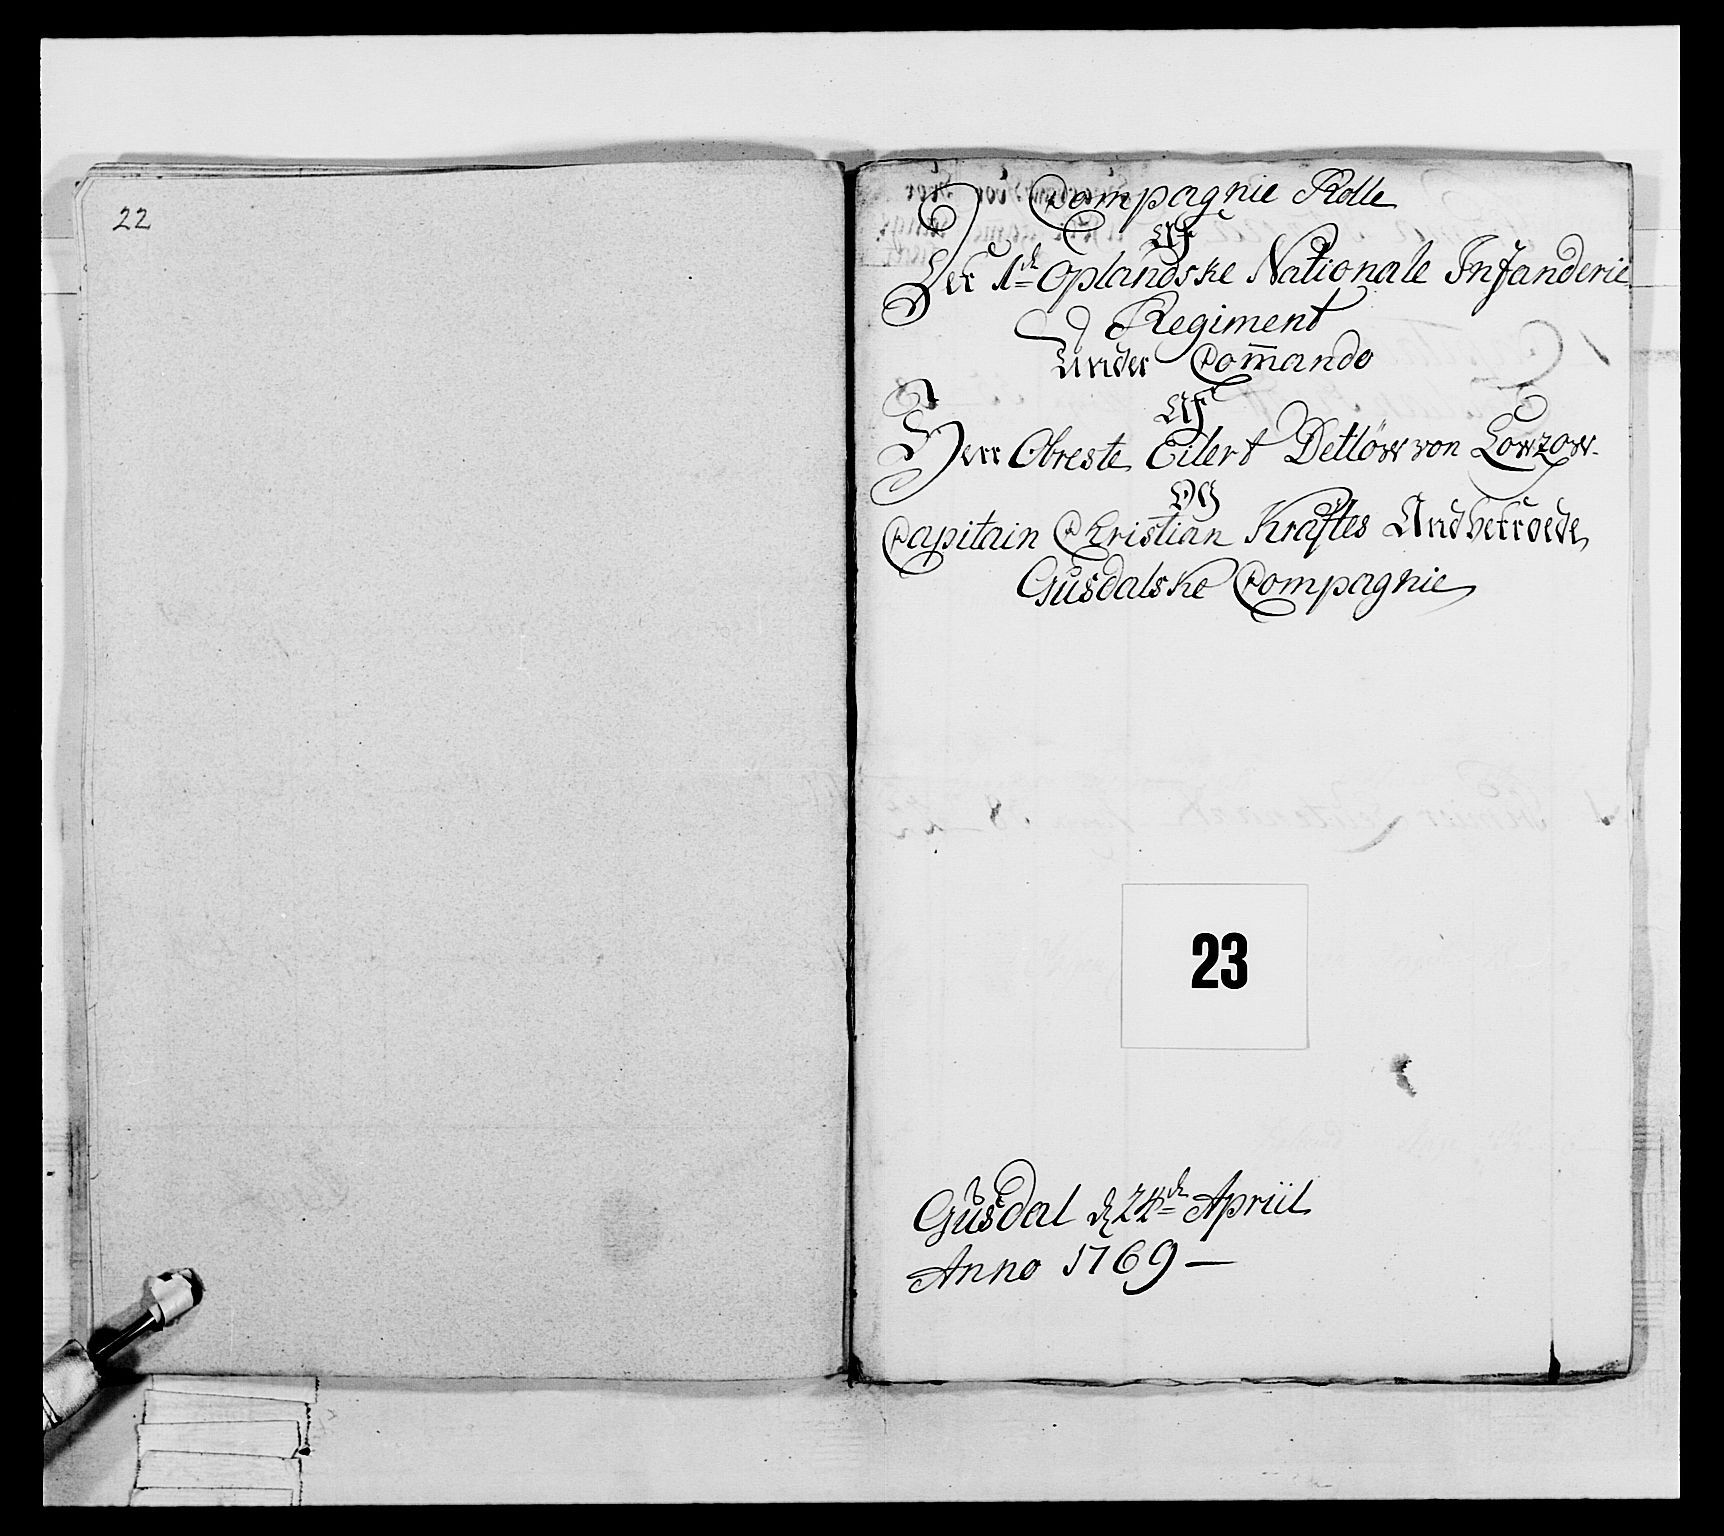 22
Compagnie Rolle
Af
Det 1te Oplandske Nationale Infanderie
Regiment
Under Com̅ando
Af
Herr Obreste Eilert Detlöw von Lowzow.
Og
Capitain Christian Kraftes Andbetroede
Gusdalske Compagnie
23
Gusdal d 24de Apriil
Anno 1769 —